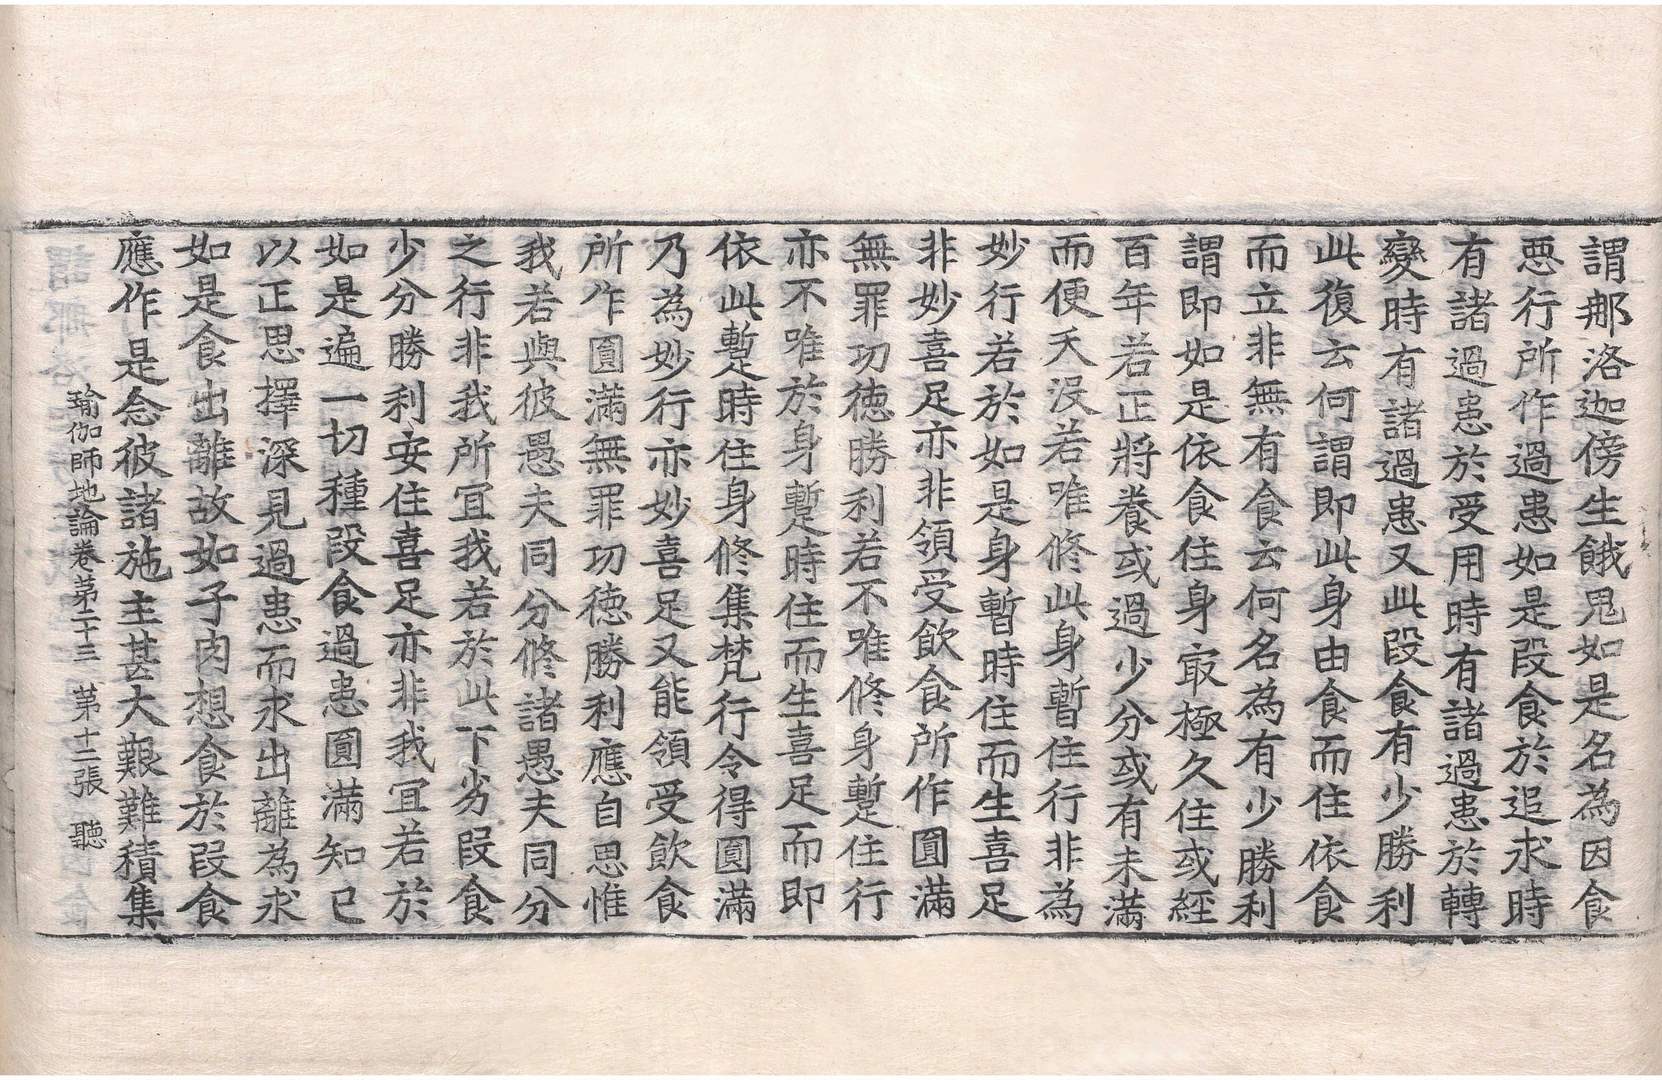 謂那洛迦傍生餓鬼如是名為因食
惡行所作過患如是段食於追求時
有諸過患於受用時有諸過患於轉
變時有諸過患又此段食有少勝利
此復云何謂即此身由食而住依食
而立非無有食云何名為有少勝利
謂即如是依食住身㝡極久住或經
百年若正將養或過少分或有未滿
而便夭沒若唯修此身暫住行非為
妙行若於如是身暫時住而生喜足
非妙喜足亦非領受飲食所作圓滿
無罪功德勝利若不唯修身蹔住行
亦不唯於身蹔時住而生喜足而即
依此蹔時住身修集梵行令得圓滿
乃為妙行亦妙喜足又能領受飲食
所作圓滿無罪功德勝利應自思惟
我若與彼愚夫同分修諸愚夫同分
之行非我所冝我若於此下劣段食
少分勝利安住喜足亦非我冝若於
如是遍一切種段食過患圓滿知已
以正思擇深見過患而求出離為求
如是食出離故如子肉想食於段食
應作是念彼諸施主甚大艱難積集
瑜伽師地論卷第二十三　第十二張　聽